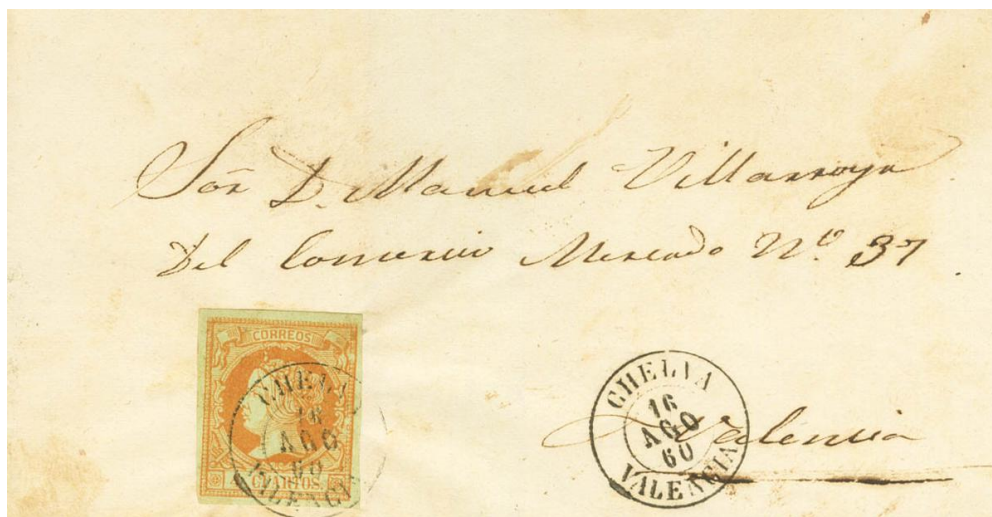 Sor D. Manuel Villarroya
Del Comercio Mercado Nº 37
CORREOS
CHELVA
16
AGO
60
VALENCIA
CUARTOS
CHELVA
16
AGO
60
VALENCIA
Valencia